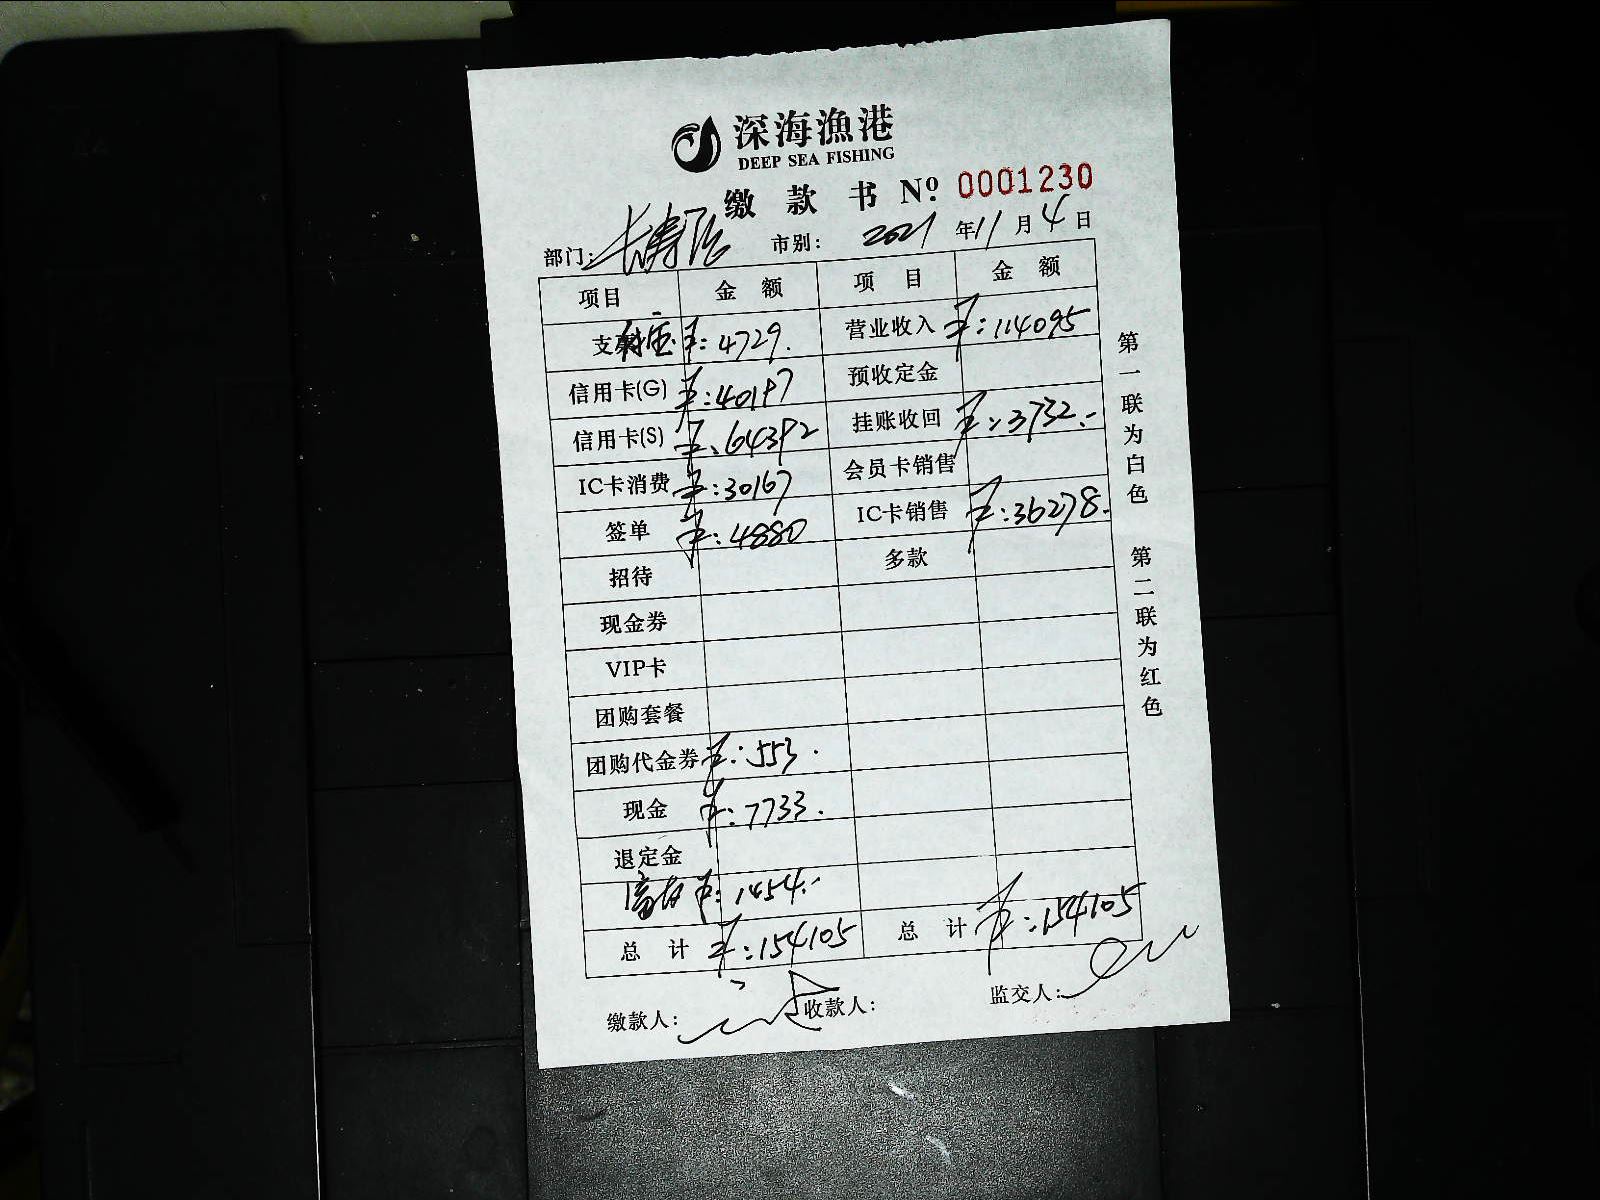 深海漁港
DEEP SEA FISHING
缴款书 Nº: 0001230
部门: 长寿路 市别: 2021年11月4日
项目 金额 项目 金额
支付宝 ¥:4729. 营业收入 ¥:114095
信用卡(G) ¥:40197 预收定金
信用卡(S) ¥:64392 挂账收回 ¥:3732.-
IC卡消费 ¥:30167 会员卡销售
签单 ¥:4880 IC卡销售 ¥:36278.
招待 多款
现金券
VIP卡
团购套餐
团购代金券 ¥:553.
现金 ¥:7733.
退定金
富友 ¥:1454.-
总计 ¥:154105 总计 ¥:154105
缴款人: 收款人: 监交人:
第一联为白色 第二联为红色